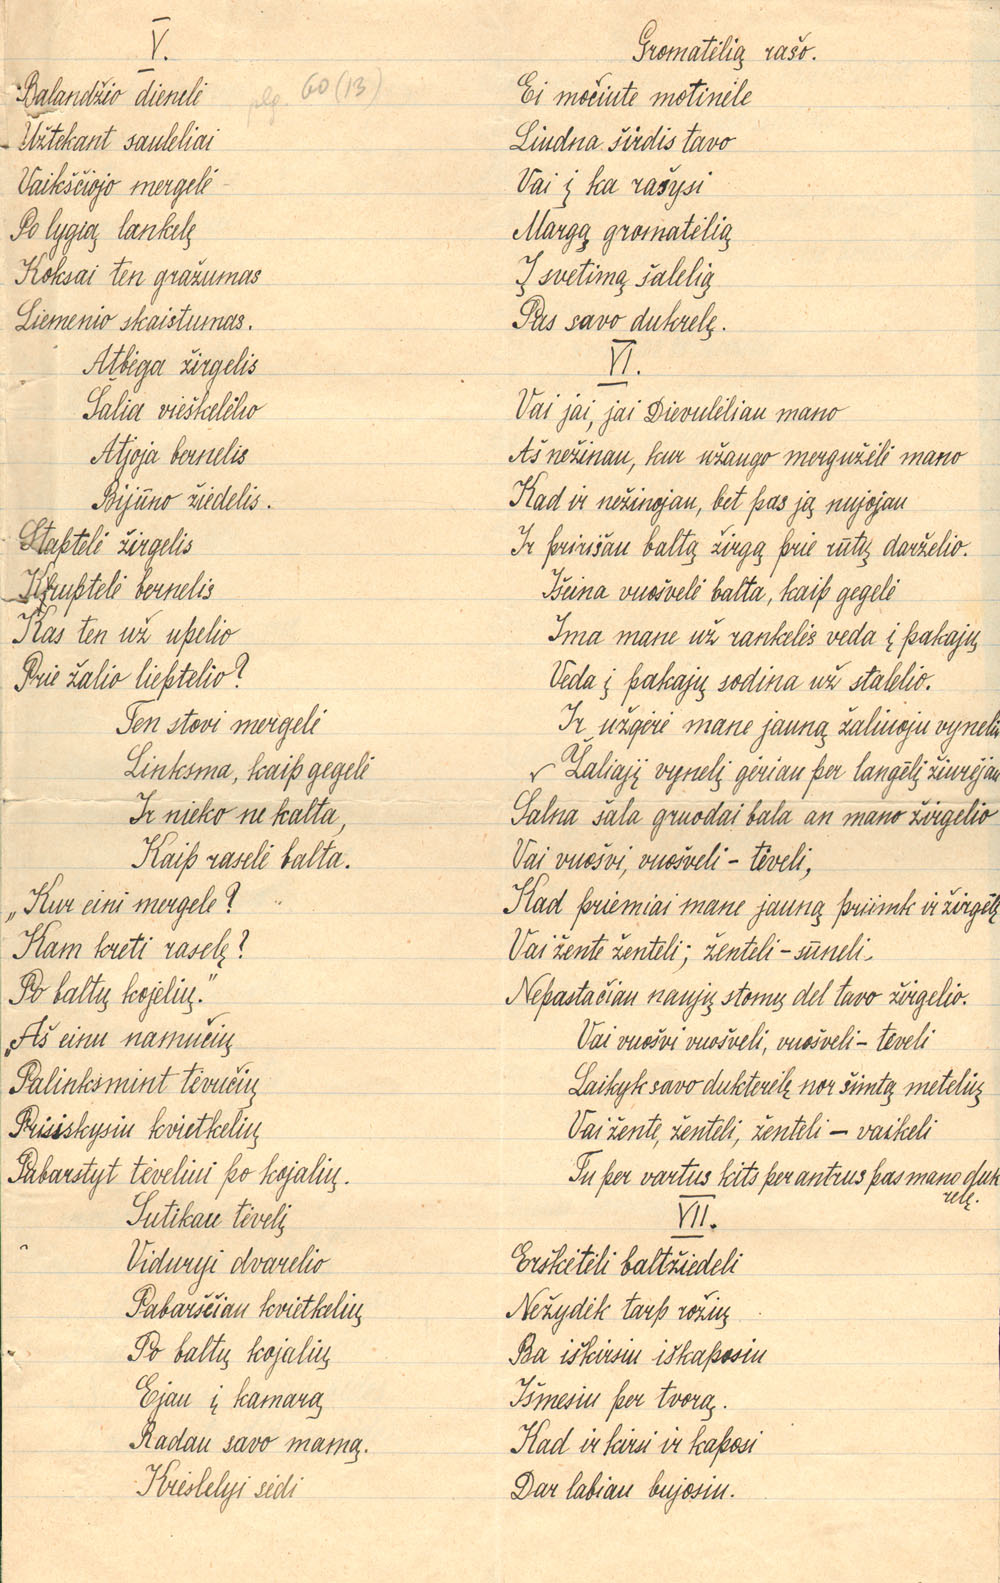 V.
plg. 60 (13)
Balandžio dienelė
Užtekant sauleliai
Vaikščiojo mergelė
Po lygią lankelę
Koksai ten gražumas
Liemenio skaistumas.
Atbėga žirgelis
Šalia vieškelėlio
Atjoja bernelis
Bijūno žiedelis.
Staptelė žirgelis
Kruptelė bernelis
Kas ten už upelio
Prie žalio lieptelio?
Ten stovi mergelė
Linksma, kaip gegelė
Ir nieko ne kalta,
Kaip raselė balta.
„Kur eini mergele?
Kam kreti raselę?
Po baltų kojelių."
„Aš einu namučių
Palinksmint tėvučių
Prisiskysiu kvietkelių
Pabarstyt tėveliui po kojalių.
Sutikau tėvelį
Viduryj dvarelio
Pabarsčiau kvietkelių
Po baltų kojalių
Ejau į kamarą
Radau savo mamą.
Krėslelyj sėdi
Gromatėlią rašo.
Ei močiute motinėle
Liudna širdis tavo
Vai į ka rašysi
Margą gromatėlią
Į svetimą šalelią
Pas savo dukrelę.
VI.
Vai jai, jai Dievulėliau mano
Aš nežinau, kur užaugo mergužėlė mano
Kad ir nežinojau, bet pas ją nujojau
Ir pririšau baltą žirgą prie rūtų darželio.
Išeina vuošvelė balta, kaip gegelė
Ima mane už rankelės veda į pakajų
Veda į pakajų sodina už stalelio.
Ir užgėrė mane jauną žaliuoju vyneliu
Žaliajį vynelį gėriau per langėlį žiurėjau
Šalna šala gruodai bala an mano žirgelio
Vai vuošvi, vuošveli - tėveli,
Kad priemiai mane jauną priimk ir žirgėlį
Vai žente ženteli; ženteli - sūneli
Nepastačiau naujų stonų del tavo žirgelio.
Vai vuošvi vuošveli, vuošveli - tėveli
Laikyk savo dukterėlę nor šimtą metelių
Vai žente, ženteli, ženteli - vaikeli
Tu per vartus kits per antrus pas mano duk
relę.
VII.
Erškėtėli baltžiedeli
Nežydėk tarp rožių
Ba iškirsiu iškaposiu
Išmesiu per tvorą.
Kad ir kirsi ir kaposi
Dar labiau bujosiu.